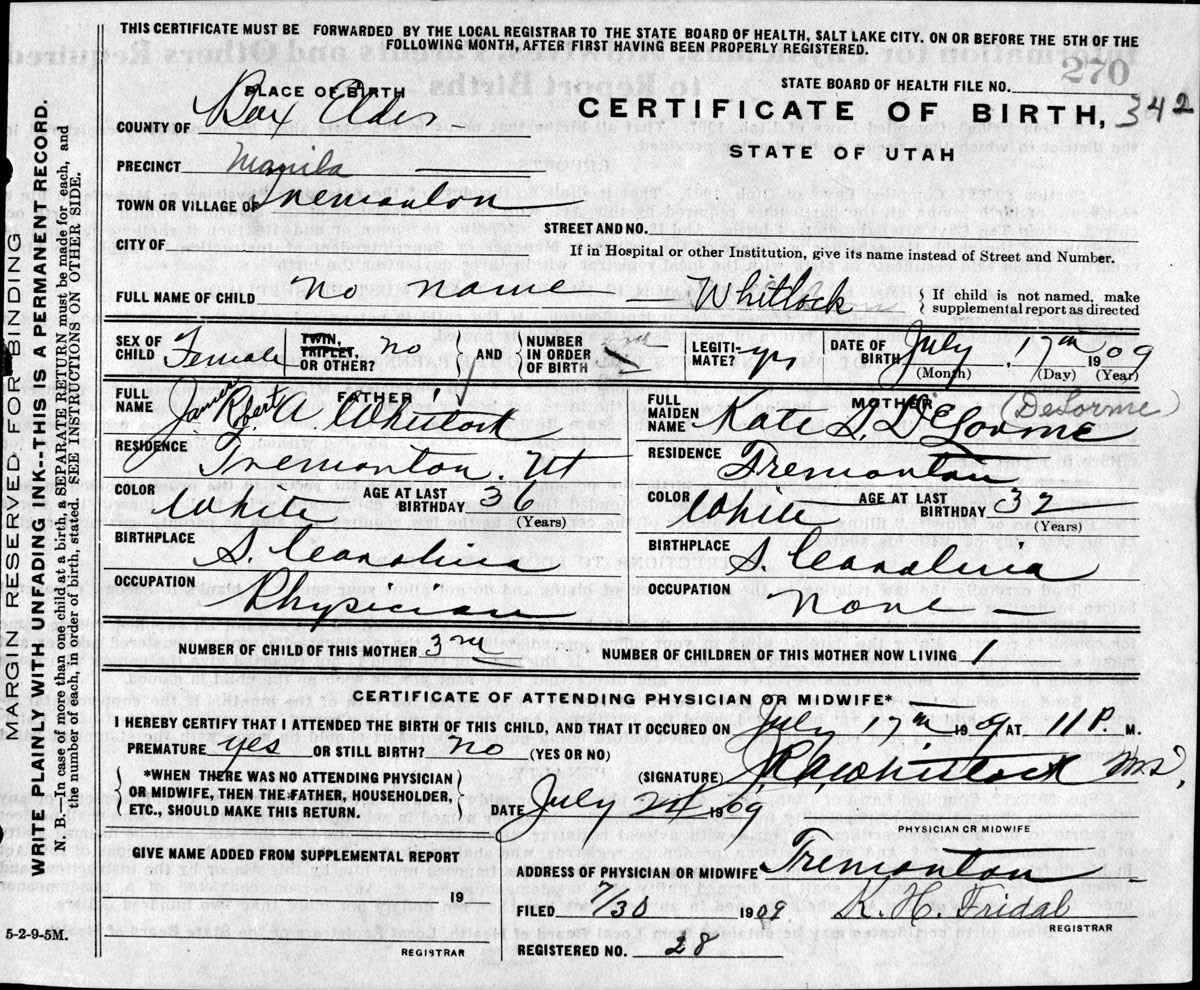 THIS CERTIFICATE MUST BE FORWARDED BY THE LOCAL REGISTRAR TO THE STATE BOARD OF HEALTH, SALT LAKE CITY. ON OR BEFORE THE 5TH OF THE
FOLLOWING MONTH, AFTER FIRST HAVING BEEN PROPERLY REGISTERED.
270
STATE BOARD OF HEALTH FILE NO.
PLACE OF BIRTH
CERTIFICATE OF BIRTH, 342
COUNTY OF Box Elder
STATE OF UTAH
PRECINCT Manila
TOWN OR VILLAGE OF Tremonton
STREET AND NO.
CITY OF
If in Hospital or other Institution, give its name instead of Street and Number.
FULL NAME OF CHILD No name — Whitlock
If child is not named, make
supplemental report as directed
SEX OF CHILD Female
TWIN, TRIPLET, OR OTHER? no
AND
NUMBER IN ORDER OF BIRTH
LEGITIMATE? yes
DATE OF BIRTH July 17th 1909
(Month) (Day) (Year)
FATHER
FULL NAME James Robert A Whitlock
RESIDENCE Tremonton. Ut
COLOR White
AGE AT LAST BIRTHDAY 36
(Years)
BIRTHPLACE S. Carolina
OCCUPATION Physician
MOTHER
FULL MAIDEN NAME Kate S. DeLorme (DeLorme)
RESIDENCE Tremonton
COLOR White
AGE AT LAST BIRTHDAY 32
(Years)
BIRTHPLACE S. Carolina
OCCUPATION none —
NUMBER OF CHILD OF THIS MOTHER 3rd
NUMBER OF CHILDREN OF THIS MOTHER NOW LIVING 1
CERTIFICATE OF ATTENDING PHYSICIAN OR MIDWIFE*
I HEREBY CERTIFY THAT I ATTENDED THE BIRTH OF THIS CHILD, AND THAT IT OCCURED ON July 17th 1909 AT 11 P. M.
PREMATURE yes OR STILL BIRTH? no (YES OR NO)
*WHEN THERE WAS NO ATTENDING PHYSICIAN
OR MIDWIFE, THEN THE FATHER, HOUSEHOLDER,
ETC., SHOULD MAKE THIS RETURN.
(SIGNATURE) J.R.A. Whitlock M.D,
DATE July 24 1909
PHYSICIAN OR MIDWIFE
GIVE NAME ADDED FROM SUPPLEMENTAL REPORT
19
REGISTRAR
ADDRESS OF PHYSICIAN OR MIDWIFE Tremonton
FILED 7/30 1909 K. H. Fridal
REGISTRAR
REGISTERED NO. 28
5-2-9-5M.
MARGIN RESERVED FOR BINDING
WRITE PLAINLY WITH UNFADING INK--THIS IS A PERMANENT RECORD.
N. B.—In case of more than one child at a birth, a SEPARATE RETURN must be made for each, and
the number of each, in order of birth, stated. SEE INSTRUCTIONS ON OTHER SIDE.